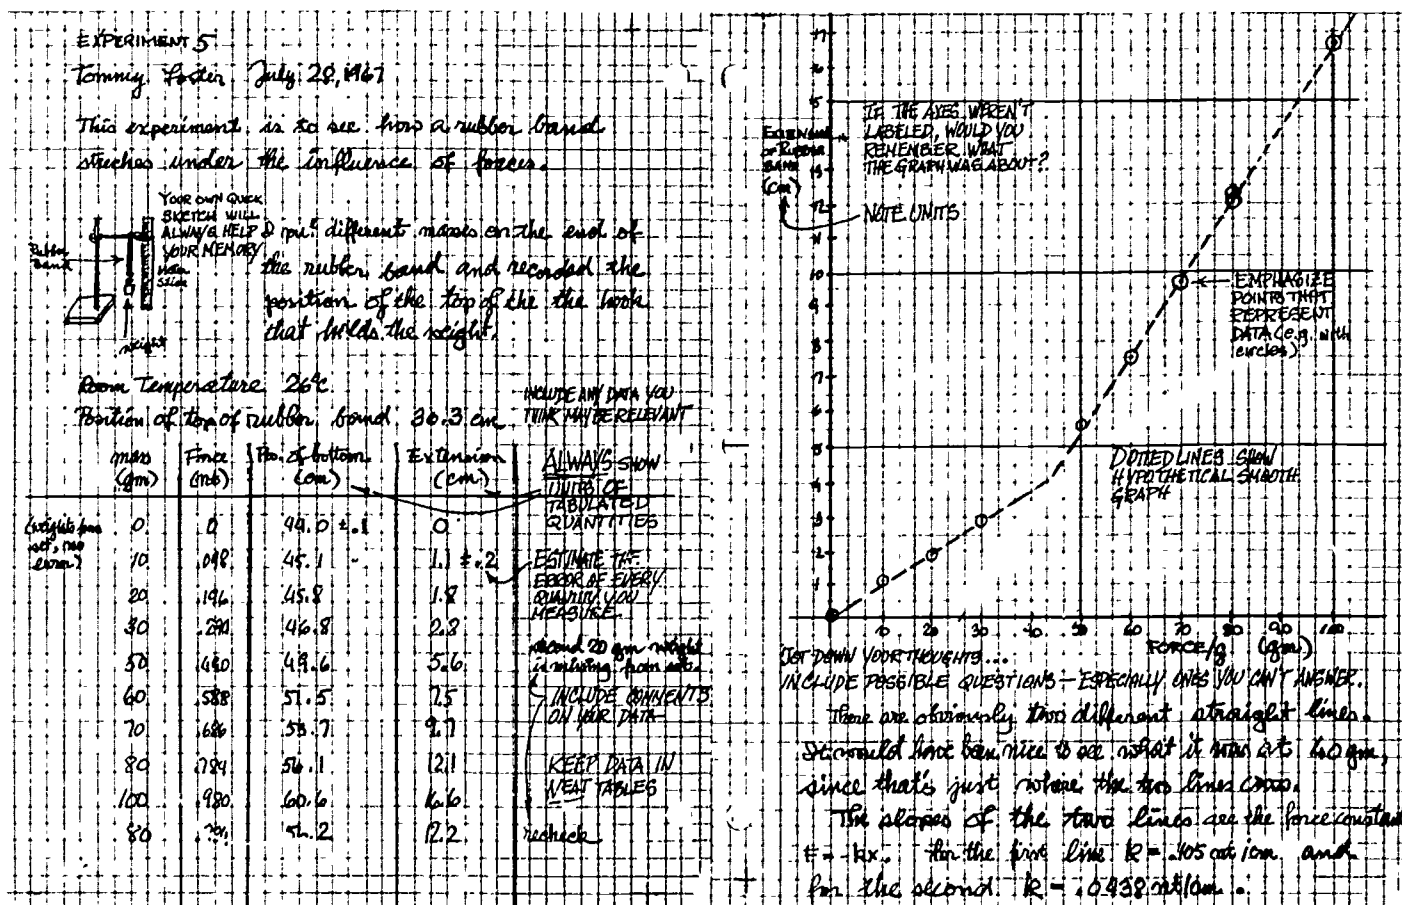 EXPERIMENT 5
Tommy Foster July 28, 1967
This experiment is to see how a rubber band
streches under the influence of forces.
YOUR OWN QUICK
SKETCH WILL
ALWAYS HELP
YOUR MEMORY
Rubber
Band
Meter
Stick
weight
I put different masses on the end of
the rubber band and recorded the
position of the top of the the hook
that holds the weight.
Room Temperature 26°C
Position of top of rubber band 30.3 cm
INCLUDE ANY DATA YOU
THINK MAY BE RELEVANT
mass (gm) Force (nt) Pos. of bottom (cm) Extension (cm)
0 0 44.0 ±.1 0
10 .098 45.1 1.1 ±.2
20 .196 45.8 1.8
30 .290 46.8 2.8
50 .490 49.6 5.6
60 .588 51.5 7.5
70 .686 53.7 9.7
80 .784 56.1 12.1
100 .980 60.6 16.6
80 56.2 12.2 recheck
(weights from
set, no
error)
ALWAYS SHOW
UNITS OF
TABULATED
QUANTITIES
ESTIMATE THE
ERROR OF EVERY
QUANTITY YOU
MEASURE
second 20 gm weight
is missing from set.
INCLUDE COMMENTS
ON YOUR DATA
KEEP DATA IN
NEAT TABLES
EXTENSION
OF RUBBER
BAND
(cm)
IF THE AXES WEREN'T
LABELED, WOULD YOU
REMEMBER WHAT
THE GRAPH WAS ABOUT?
NOTE UNITS
EMPHASIZE
POINTS THAT
REPRESENT
DATA (e.g. with
circles)
DOTTED LINES SHOW
HYPOTHETICAL SMOOTH
GRAPH
17
16
15
14
13
12
11
10
9
8
7
6
5
4
3
2
1
10 20 30 50 60 70 80 90 100
FORCE/g (gm)
JOT DOWN YOUR THOUGHTS...
INCLUDE POSSIBLE QUESTIONS — ESPECIALLY ONES YOU CAN'T ANSWER.
There are obviously two different straight lines.
It would have been nice to see what it was at 40 gm,
since that's just where the two lines cross.
The slopes of the two lines are the force constant
F = -kx. For the first line k = .105 nt/cm and
for the second k = .0438 nt/cm.